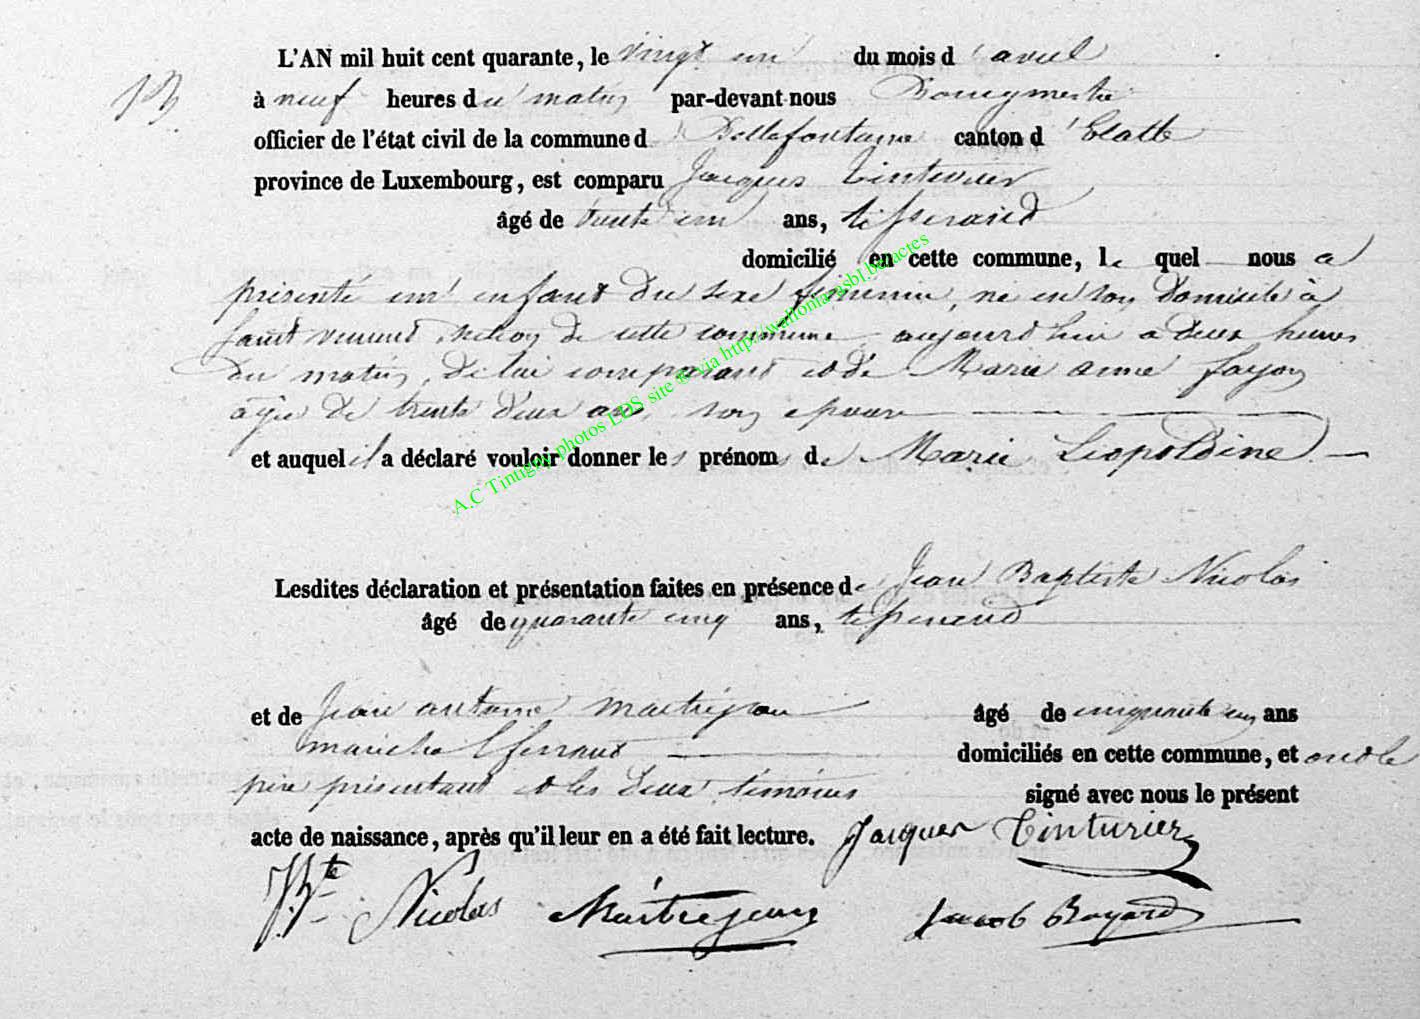 L'AN mil huit cent quarante, le vingt un du mois d'avril
à neuf heures du matin par-devant nous Bourgmestre
officier de l'état civil de la commune d Bellefontaine canton d'Etalle
province de Luxembourg, est comparu Jacques Tinturier
âgé de trente un ans, tisserand
domicilié en cette commune, le quel nous a
présenté un enfant du sexe feminin, né en son domicile à
Saint vincent section de cette commune aujourd'hui a deux heures
du matin, de lui comparant et de Marie anne fayon
agée de trente deux ans, son epouse
et auquel il a déclaré vouloir donner les prénoms de Marie Leopoldine
Lesdites déclaration et présentation faites en présence de Jean Baptiste Nicolas
âgé de quarante cinq ans, tisserand
et de Jean antoine maitrejean âgé de cinquante un ans
marechal ferrant domiciliés en cette commune, et ont le
père présentant et les deux témoins signé avec nous le présent
acte de naissance, après qu'il leur en a été fait lecture. Jacques Tinturier
J. Bte Nicolas Maitrejean Jacob Bayard
A.C Tintigny photos LDS site ® via http://wallonia-asbl.be/actes